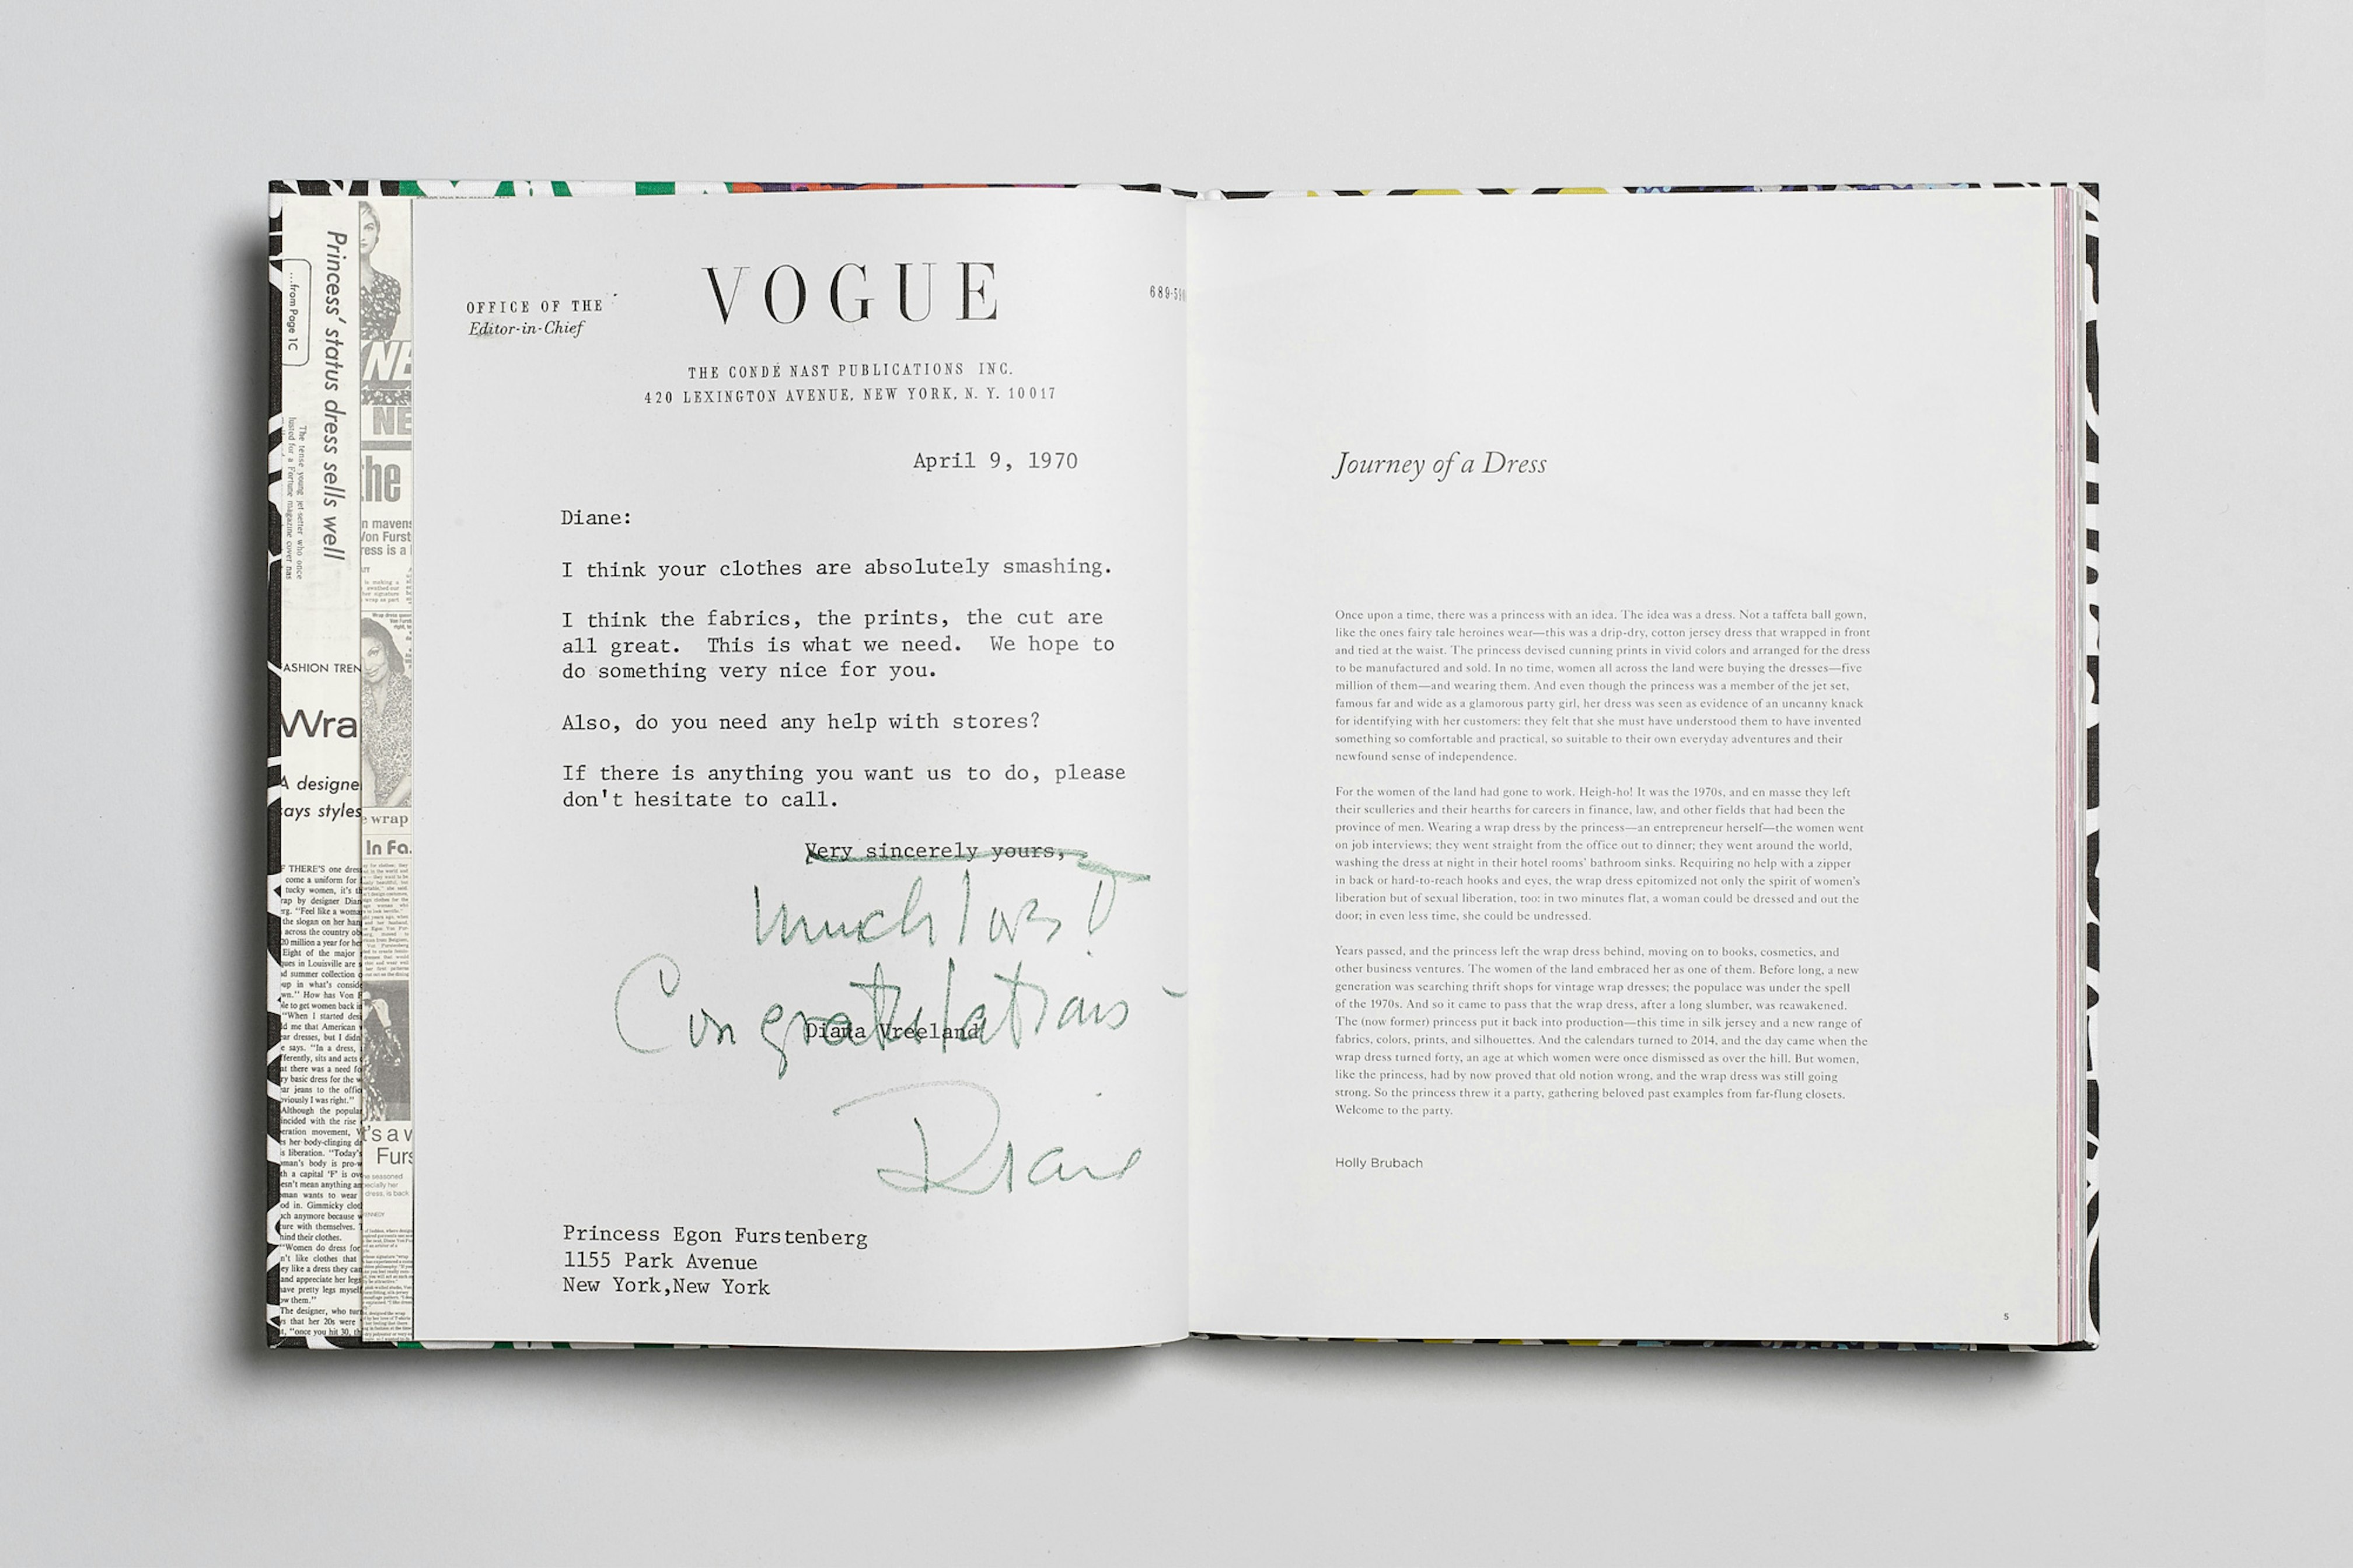 Princess' status dress sells well
...from Page 1C
The tense young jet-setter who once
lusted for a Fortune magazine cover has
ASHION TREN
Wra
A designe
says styles
NE
NE
the
n mavens
Von Furst
ress is a
e wrap
In Fa.
t's a w
Furs
OFFICE OF THE
Editor-in-Chief
VOGUE
THE CONDÉ NAST PUBLICATIONS INC.
420 LEXINGTON AVENUE, NEW YORK, N. Y. 10017
April 9, 1970
Diane:
I think your clothes are absolutely smashing.
I think the fabrics, the prints, the cut are
all great. This is what we need. We hope to
do something very nice for you.
Also, do you need any help with stores?
If there is anything you want us to do, please
don't hesitate to call.
Very sincerely yours,
much love &
Congratulations
Diana Vreeland
Diana
Princess Egon Furstenberg
1155 Park Avenue
New York,New York
Journey of a Dress
Once upon a time, there was a princess with an idea. The idea was a dress. Not a taffeta ball gown,
like the ones fairy tale heroines wear—this was a drip-dry, cotton jersey dress that wrapped in front
and tied at the waist. The princess devised cunning prints in vivid colors and arranged for the dress
to be manufactured and sold. In no time, women all across the land were buying the dresses—five
million of them—and wearing them. And even though the princess was a member of the jet set,
famous far and wide as a glamorous party girl, her dress was seen as evidence of an uncanny knack
for identifying with her customers: they felt that she must have understood them to have invented
something so comfortable and practical, so suitable to their own everyday adventures and their
newfound sense of independence.
For the women of the land had gone to work. Heigh-ho! It was the 1970s, and en masse they left
their sculleries and their hearths for careers in finance, law, and other fields that had been the
province of men. Wearing a wrap dress by the princess—an entrepreneur herself—the women went
on job interviews; they went straight from the office out to dinner; they went around the world,
washing the dress at night in their hotel rooms' bathroom sinks. Requiring no help with a zipper
in back or hard-to-reach hooks and eyes, the wrap dress epitomized not only the spirit of women's
liberation but of sexual liberation, too: in two minutes flat, a woman could be dressed and out the
door; in even less time, she could be undressed.
Years passed, and the princess left the wrap dress behind, moving on to books, cosmetics, and
other business ventures. The women of the land embraced her as one of them. Before long, a new
generation was searching thrift shops for vintage wrap dresses; the populace was under the spell
of the 1970s. And so it came to pass that the wrap dress, after a long slumber, was reawakened.
The (now former) princess put it back into production—this time in silk jersey and a new range of
fabrics, colors, prints, and silhouettes. And the calendars turned to 2014, and the day came when the
wrap dress turned forty, an age at which women were once dismissed as over the hill. But women,
like the princess, had by now proved that old notion wrong, and the wrap dress was still going
strong. So the princess threw it a party, gathering beloved past examples from far-flung closets.
Welcome to the party.
Holly Brubach
5